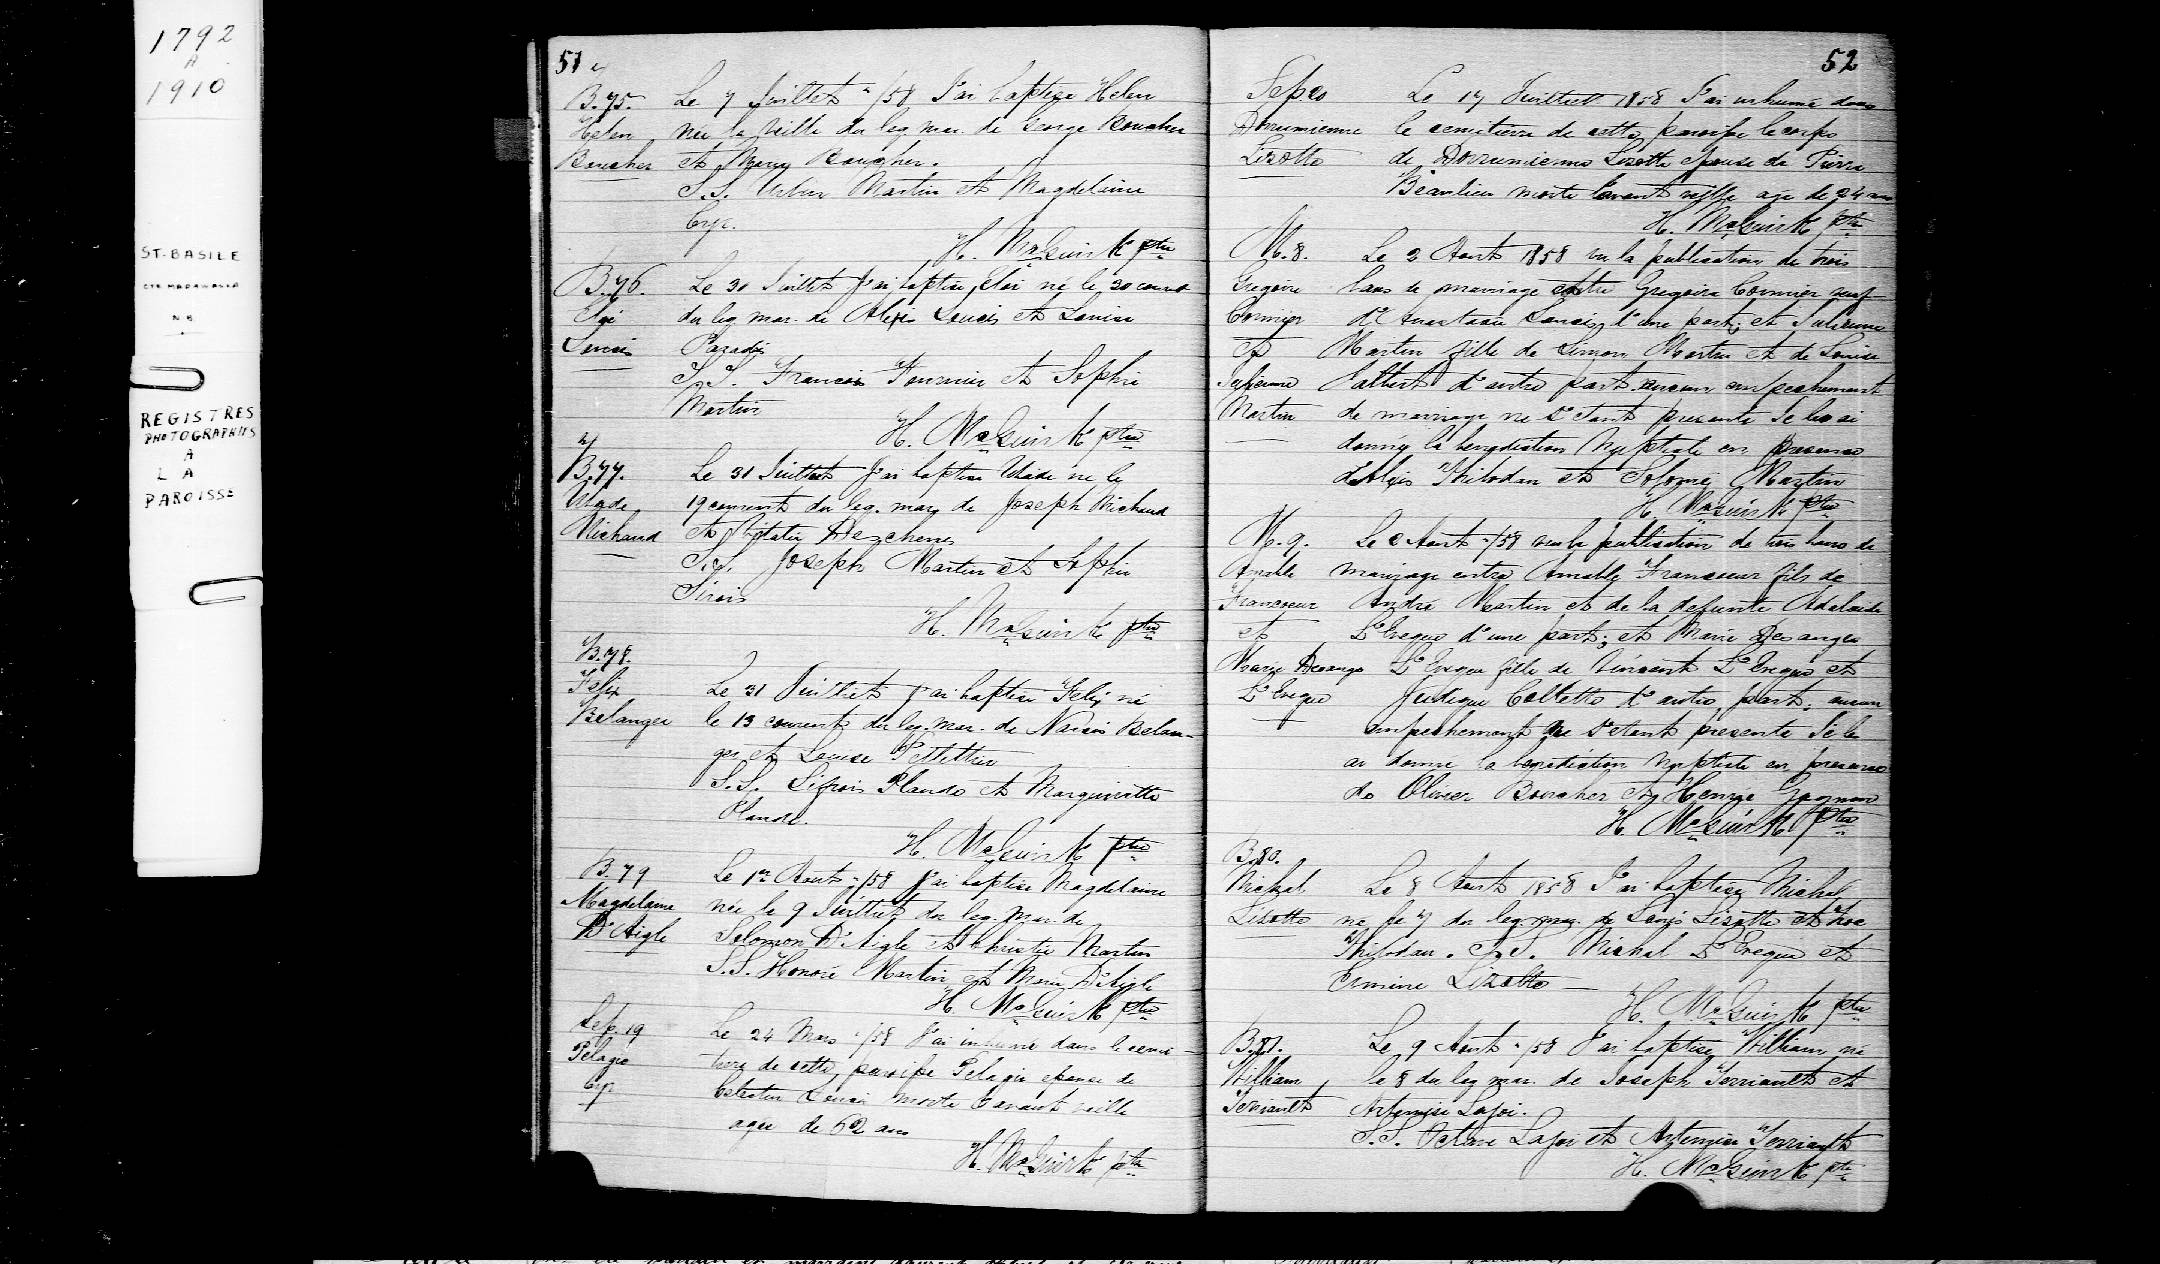 1792
A
1910
ST-BASILE
CTE MADAWASKA
N B
REGISTRES
PHOTOGRAPHIES
A
L A
PAROISSE
51
B. 75.
Helen
Boucher
Le 7 Juillet "/58 J'ai baptise Helen
née la veille du leg mar. de George Boucher
et Mary Boucher.
S.S. Urbin Martin et Magdelaine
Cyr.
H. McGuirk ptre
B. 76.
Eloi
Soucis
Le 30 Juillet J'ai baptise Eloi né le 30 courant
du leg mar. de Alexis Soucis et Louise
Paradis
S.S. Francois Fournier et Sophie
Martin
H. McGuirk ptre
B. 77.
Michaud
Le 31 Juillet J'ai baptise né le
19 courant du leg. mar. de Joseph Michaud
et Deschenes
S.S. Joseph Martin et Sophie
Sirois
H. McGuirk ptre
B. 78.
Felix
Belanger
Le 31 Juillet j'ai baptise Felix né
le 13 courant du leg. mar. de Narcis Belan-
ger et Louise Pellettier
S.S. Sifrois Plande et Margueritte
Plande.
H. McGuirk ptre
B. 79
Magdelaine
D'Aigle
Le 1er Aout "/58 J'ai baptise Magdelaine
née le 9 Juillet du leg. mar. de
Solomon D'Aigle et Christie Martin
S.S. Honoré Martin et Marie D'Aigle
H. McGuirk ptre
Sep. 19
Pelagie
Cyr
Le 24 Mars "/58 J'ai inhumé dans le cemi-
tiere de cette paroisse Pelagie epouse de
Celestin Soucis morte l'avant veille
agee de 62 ans
H. McGuirk ptre
52
Sep. 20
Lizotte
Le 17 Juillet 1858 J'ai inhumé dans
le cemitiere de cette paroisse le corps
de Lizotte epouse de Pierre
Beaulieu morte l'avant veille age de 24 ans
H. McGuirk ptre
M. 8.
Gregoire
Cormier
et
Julienne
Martin
Le 2 Aout 1858 vu la publication de trois
bans de mariage entre Gregoire Cormier veuf
d'Anastasie Soucis, d'une part; et Julienne
Martin fille de Simon Martin et de Louise
d'autre part. aucun empechement
de mariage ne s'etant presenté Je leur ai
donné la benediction Nuptiale en presence
d'Alexis Thibodau et Solomey Martin
H. McGuirk ptre
M. 9.
Amable
Francoeur
et
Marie Desange
L'Eveque
Le 2 Aout "/58 vu la publication de trois bans de
mariage entre Amable Francoeur fils de
André Martin et de la defunte Adelaide
L'Eveque d'une part; et Marie Desanges
L'Eveque fille de Vincent L'Eveque et
Judique Collette d'autre part; aucun
empechement ne s'etant presenté Je leur
ai donné la benediction Nuptiale en presence
de Olivier Boucher et Henrye Gagnon
H. McGuirk ptre
B. 80.
Michel
Lizotte
Le 8 Aout 1858 J'ai baptise Michel
né le 7 du leg. mar. de Lizotte et
Thibodau. S.S. Michel L'Eveque et
Ermine Lizotte
H. McGuirk ptre
B. 81.
William
Terriault
Le 9 Aout "/58 J'ai baptise William né
le 8 du leg mar. de Joseph Terriault et
Artemise Lajoi.
S.S. Octave Lajoi et Artemise Terriault
H. McGuirk ptre